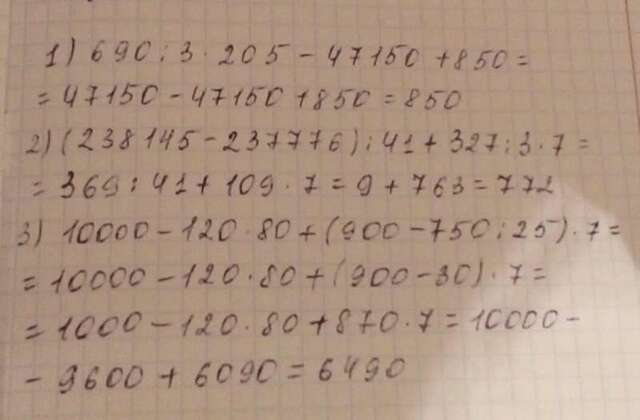 1) 690 : 3 · 205 - 47150 + 850 =
= 47150 - 47150 + 850 = 850
2) (238145 - 237776) : 41 + 327 : 3 · 7 =
= 369 : 41 + 109 · 7 = 9 + 763 = 772
3) 10000 - 120 · 80 + (900 - 750 : 25) · 7 =
= 10000 - 120 · 80 + (900 - 30) · 7 =
= 1000 - 120 · 80 + 870 · 7 = 10000 -
- 9600 + 6090 = 6490